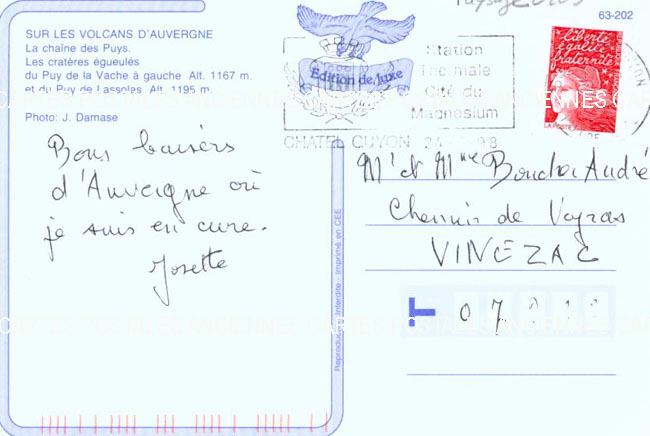 63-202
SUR LES VOLCANS D'AUVERGNE
La chaîne des Puys.
Les cratères égueulés
du Puy de la Vache à gauche Alt. 1167 m.
et du Puy de Lassolas Alt. 1195 m.
Photo: J. Damase
Edition de luxe
Station
Thermale
Cité du
Magnésium
CHATEL GUYON 98
liberté
égalité
fraternité
LA POSTE
Bons baisers
d'Auvergne où
je suis en cure.
Josette
Mr et Mme Bouchon André
Chemin de Vayras
VINEZAC
07
Interdite - Imprimé en CEE
CARTES POSTALES ANCIENNES